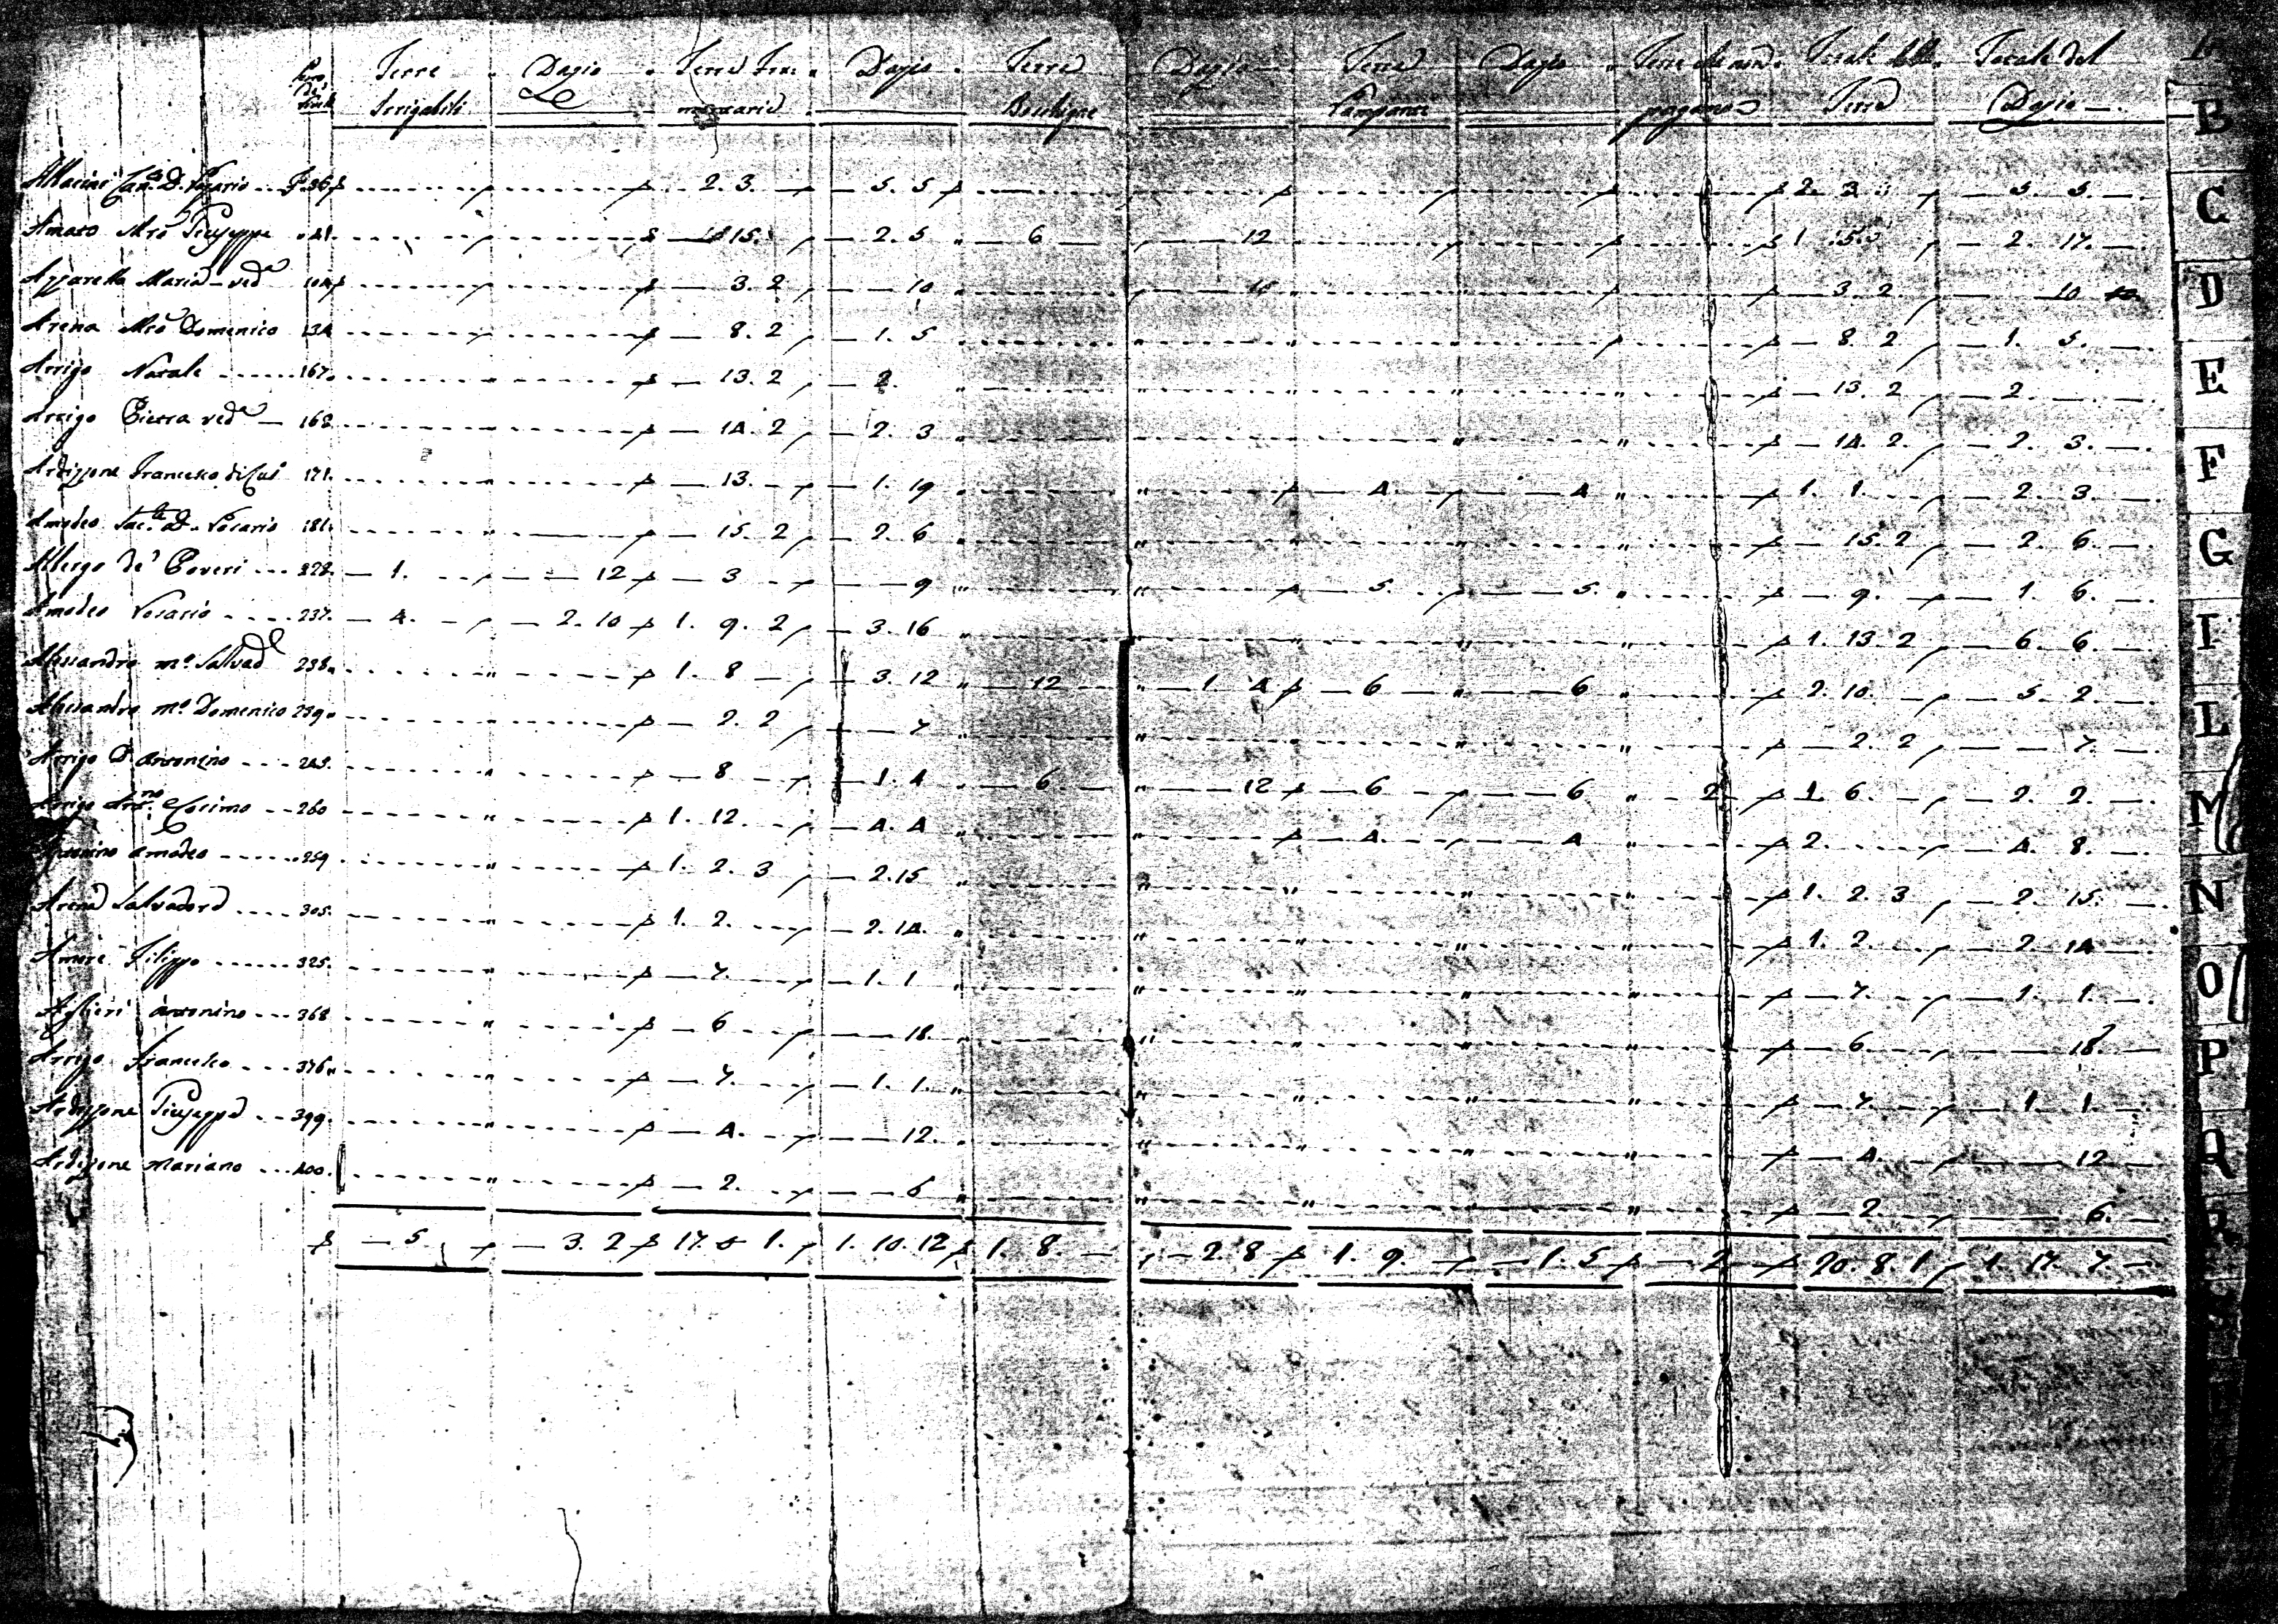 Terre Dazio Terre Dazio Terre Dazio Terre Dazio Terre che non Totale delle Totale del
Irrigabili Boschigne pagano Terre Dazio
B
C. D. Rosario 2. 3. 5. 5 2. 3. 5. 5.
C
Amato Mro Giuseppe 15. 2. 5 6 12 1. 15. 2. 17.
Azzarella Maria ved.a 3. 2 10 3. 2. 10
D
Arena Mro Domenico 134 8. 2 1. 5 8. 2 1. 5.
Arrigo Natale 167. 13. 2 2. 13. 2 2.
E
Arrigo Pietra ved.a 168 14. 2 2. 3 14. 2. 2. 3.
F
Ardizzone Francesco di 171. 13. 1. 19 4. 4 1. 1. 2. 3.
Amodeo Rosario 181. 15. 2 2. 6 15. 2 2. 6.
G
Albergo de' Poveri 1. 12 3 9 5. 5. 9. 1. 6.
Amodeo Rosario 237. 4. 2. 10 1. 9. 2 3. 16 1. 13. 2 6. 6.
I
Alessandro mo Salvad.e 238 1. 8 3. 12 12 1. 4 6 6 2. 10. 5. 2.
Alessandro mo Domenico 239 2. 2 7 2. 2 7.
L
Arrigo D. Antonino 243. 8 1. 4 6. 12 6 6 2 1. 6. 2. 2.
M
Arrigo Cosimo 260 1. 12. 4. 4 4. 4 2. 4. 8.
Antonino Amodeo 259 1. 2. 3 2. 15 1. 2. 3 2. 15.
N
Arena Salvadore 305. 1. 2. 2. 14. 1. 2. 2. 14
Amore Filippo 325. 7. 1. 1 7. 1. 1.
O
Aglieri Antonino 368 6 18. 6 18.
P
Arrigo Francesco 376 7. 1. 1. 7. 1. 1.
Ardizzone Giuseppe 399. 4. 12. 4. 12
Q
Ardizzone Mariano 400. 2. 6 2. 6.
R
5. 3. 2 17. 5 1. 1. 10. 12 1. 8. 2. 8 1. 9. 1. 5 2 20. 8. 1 1. 17. 7